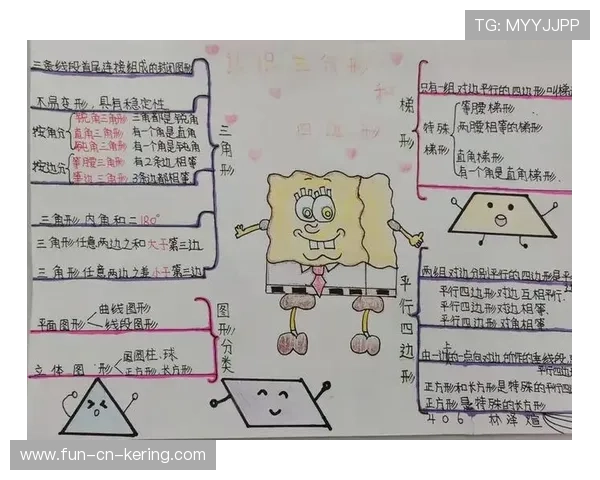 TG: MYYJJPP
三条线段首尾连接组成的封闭图形
不易变形，具有稳定性
按角分
锐角三角形 三角都是锐角
直角三角形 有一个角是直角
钝角三角形 有一个角是钝角
按边分
等腰三角形 有2条边相等
等边三角形 3条边都相等
三角形内角和=180°
三角形任意两边之和大于第三边
三角形任意两边之差小于第三边
三角形
平面图形
曲线图形
线段图形
立体图形
圆柱.球
正方形.长方形
图形分类
四边形
只有一组对边平行的四边形叫梯
特殊梯形
等腰梯形
两腰相等的梯形
直角梯形
有一个角是直角梯形.
梯形
两组对边分别平行的四边形是平
平行四边形对边互相平行.
平行四边形对边相等.
平行四边形对角相等
平行四边形
正方形和长方形是特殊的平行四
正方形是特殊的长方形
406 林泽煊
www.fun-cn-kering.com